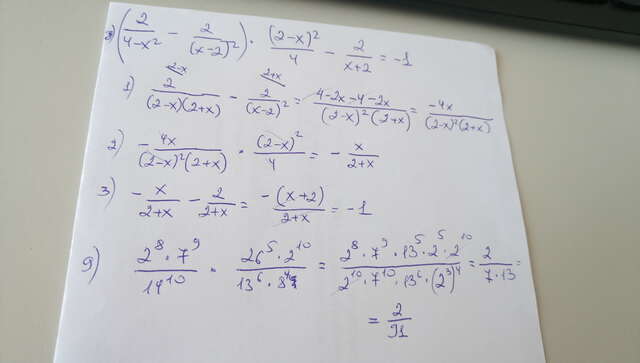 8) (2/(4-x²) - 2/(x-2)²) · (2-x)²/4 - 2/(x+2) = -1
1) 2/((2-x)(2+x)) - 2/(x-2)² = (4-2x-4-2x)/((2-x)²(2+x)) = -4x/((2-x)²(2+x))
2) -4x/((2-x)²(2+x)) · (2-x)²/4 = -x/(2+x)
3) -x/(2+x) - 2/(2+x) = -(x+2)/(2+x) = -1
9) (2⁸·7⁹)/14¹⁰ · (26⁵·2¹⁰)/(13⁶·8⁴) = (2⁸·7⁹·13⁵·2⁵·2¹⁰)/(2¹⁰·7¹⁰·13⁶·(2³)⁴) = 2/(7·13) =
= 2/91